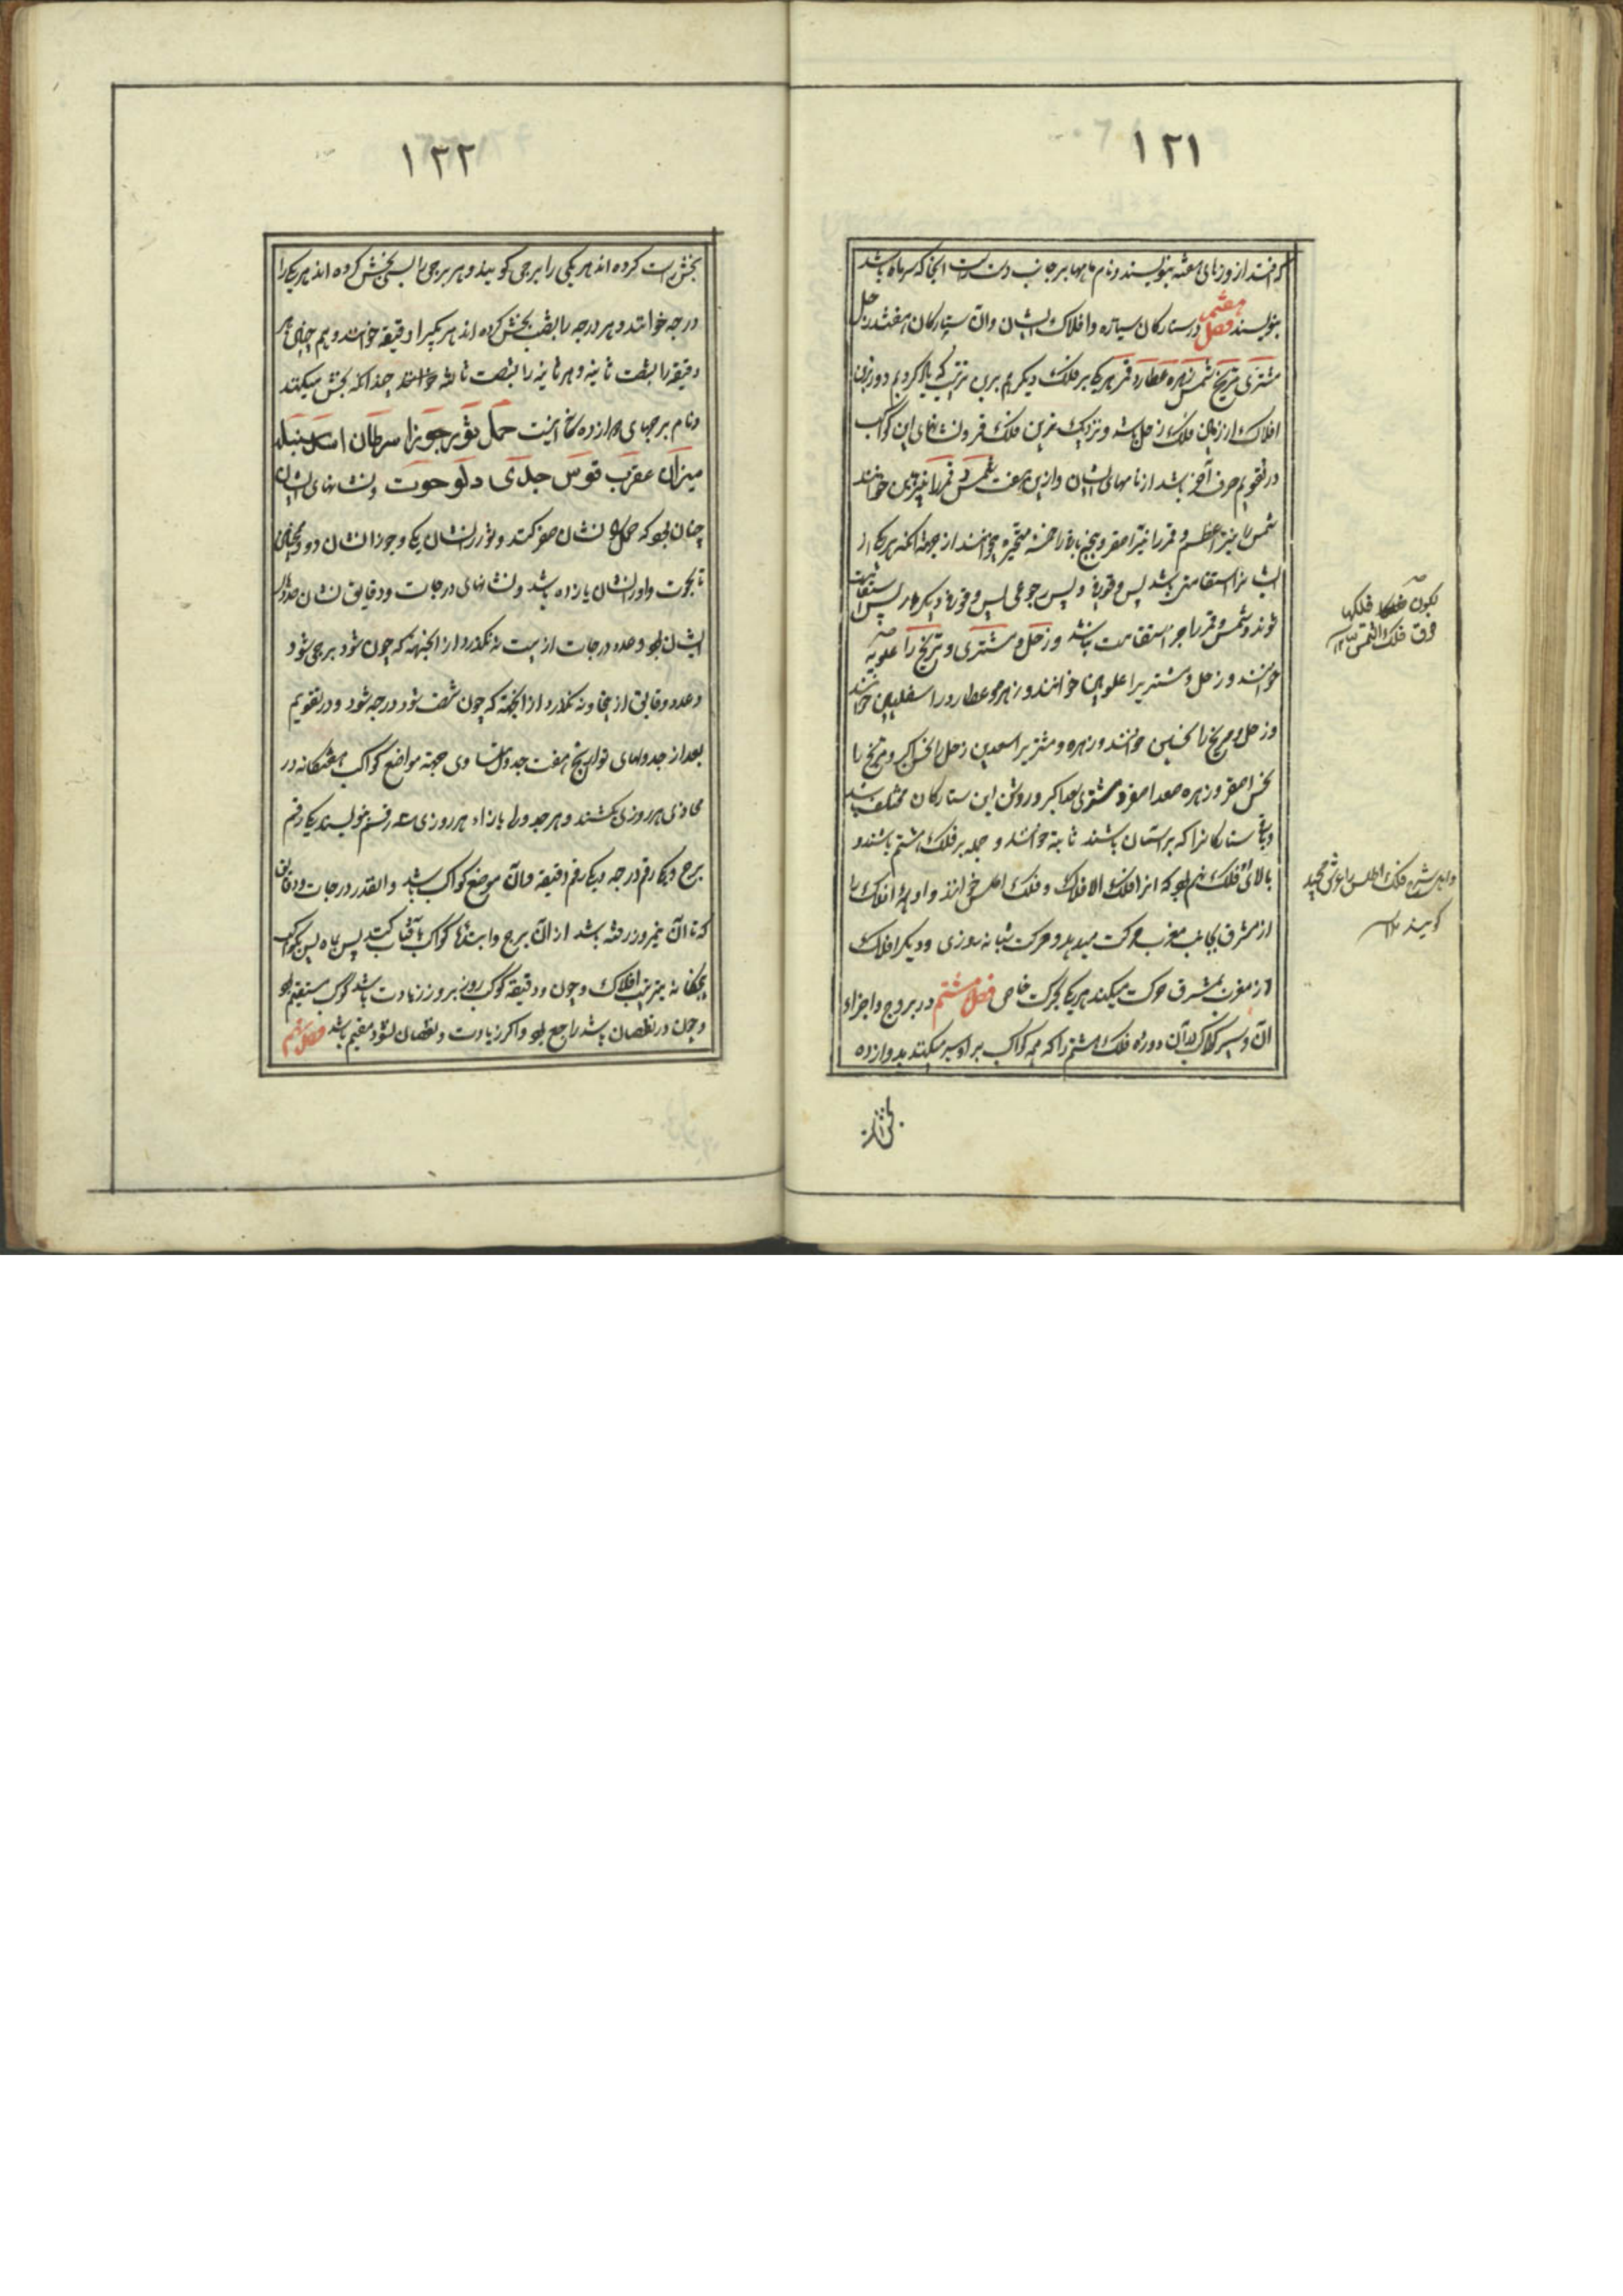 ۱۲۱
که افتد از روزهای هفته بنویسند و نام ماهها بر جانب دست راست آنجا که سر ماه باشد
بنویسند فصل هفتم در ستارگان سیاره و افلاک ایشان و آن ستارگان هفتند زحل
مشتری مریخ شمس زهره عطارد قمر هر یکی بر فلک دیگرم برین ترتیب که یاد کردیم دورترین
افلاک از زمین فلک زحل باشد و نزدیک ترین فلک قمر و نشانهای این کواکب
در تقویم حرف آخر باشد از نامهای ایشان و ازین هفت شمس و قمر را نیرین خوانند
شمس را نیر اعظم و قمر را نیر اصغر و پنج باقی را خمسه متحیره خوانند از جهة آنکه هر یکی از
ایشانرا استقامتی باشد پس وقوفی و پس رجوعی پس وقوفی دیگر بار پس استقامت
شوند و شمس و قمر را جز استقامت نباشد و زحل و مشتری و مریخ را علویه
خوانند و زحل و مشتریرا علویین خوانند و زهره و عطارد را سفلیین خوانند
و زحل و مریخ را نحسین خوانند و زهره و مشتریرا سعدین زحل را نحس اکبر و مریخ را
نحس اصغر و زهره سعد اصغر و مشتری سعد اکبر و روش این ستارگان مختلف باشد
و باقی ستارگانرا که بر آسمان باشند ثابته خوانند و جمله بر فلک هشتم باشند و
بالای او فلک نهم بود که انرا فلک الافلاک و فلک اطلس خوانند و او همه افلاک را
از مشرق بجانب مغرب حرکت میدهد و حرکت شبانه روزی و دیگر افلاک
از مغرب بمشرق حرکت میکنند هر یکی بحرکت خاص فصل هشتم در بروج و اجزاء
آن و سیر کواکب در آن دوره فلک هشتم را که همه کواکب بر او سیر میکنند بدوازده
بخش راست
لکون فلکها
فوق فلک الشمس
و اهل شرع فلک اطلس را عرش مجید
گویند
۱۲۲
بخش راست کرده اند هر یکی را برجی گویند و هر برجی را بسی بخش کرده اند هر یکی را
درجه خوانند و هر درجه را بشصت بخش کرده اند هر یکیرا دقیقه خوانند و هم چنین هر
دقیقه را بشصت ثانیه و هر ثانیه را بشصت ثالثه خوانند چندانکه بخش میکنند
و نام برجهای دوازده گانه اینست حمل ثور جوزا سرطان اسد سنبله
میزان عقرب قوس جدی دلو حوت و نشانهای ایشان
چنان بود که حمل را نشان صفر کنند و ثور را نشان یکی و جوزا نشان دو و همچنین
تا بحوت و او را نشان یازده باشد و نشانهای درجات و دقایق نشان عدد
ایشان بود و عدد درجات از بیست نه نگذرد از انجهة که چون سی شود برجی شود
و عدد دقایق از پنجاه و نه نگذرد از انجهة که چون شصت شود درجه شود و در تقویم
بعد از جدولهای تواریخ هفت جدول متساوی جهة مواضع کواکب هفتگانه در
محاذی هر روزی بکشند و هر جدولی بازاء هر روزی سه رقم بنویسند یکی رقم
برج و یکی رقم درجه و یکی رقم دقیقه و آن موضع کواکب باشد و انقدر درجات و دقایق
که تا آن نیمروز رفته باشد از آن برج و ابتداء کواکب بآفتاب کنند پس بماه پس بکواکب
پنجگانه بترتیب افلاک و چون و دقیقه کوکب روز بروز زیادت باشد کوکب مستقیم بود
و چون در نقصان باشد راجع بود و اگر زیادت و نقصان نشود مقیم باشد فصل نهم